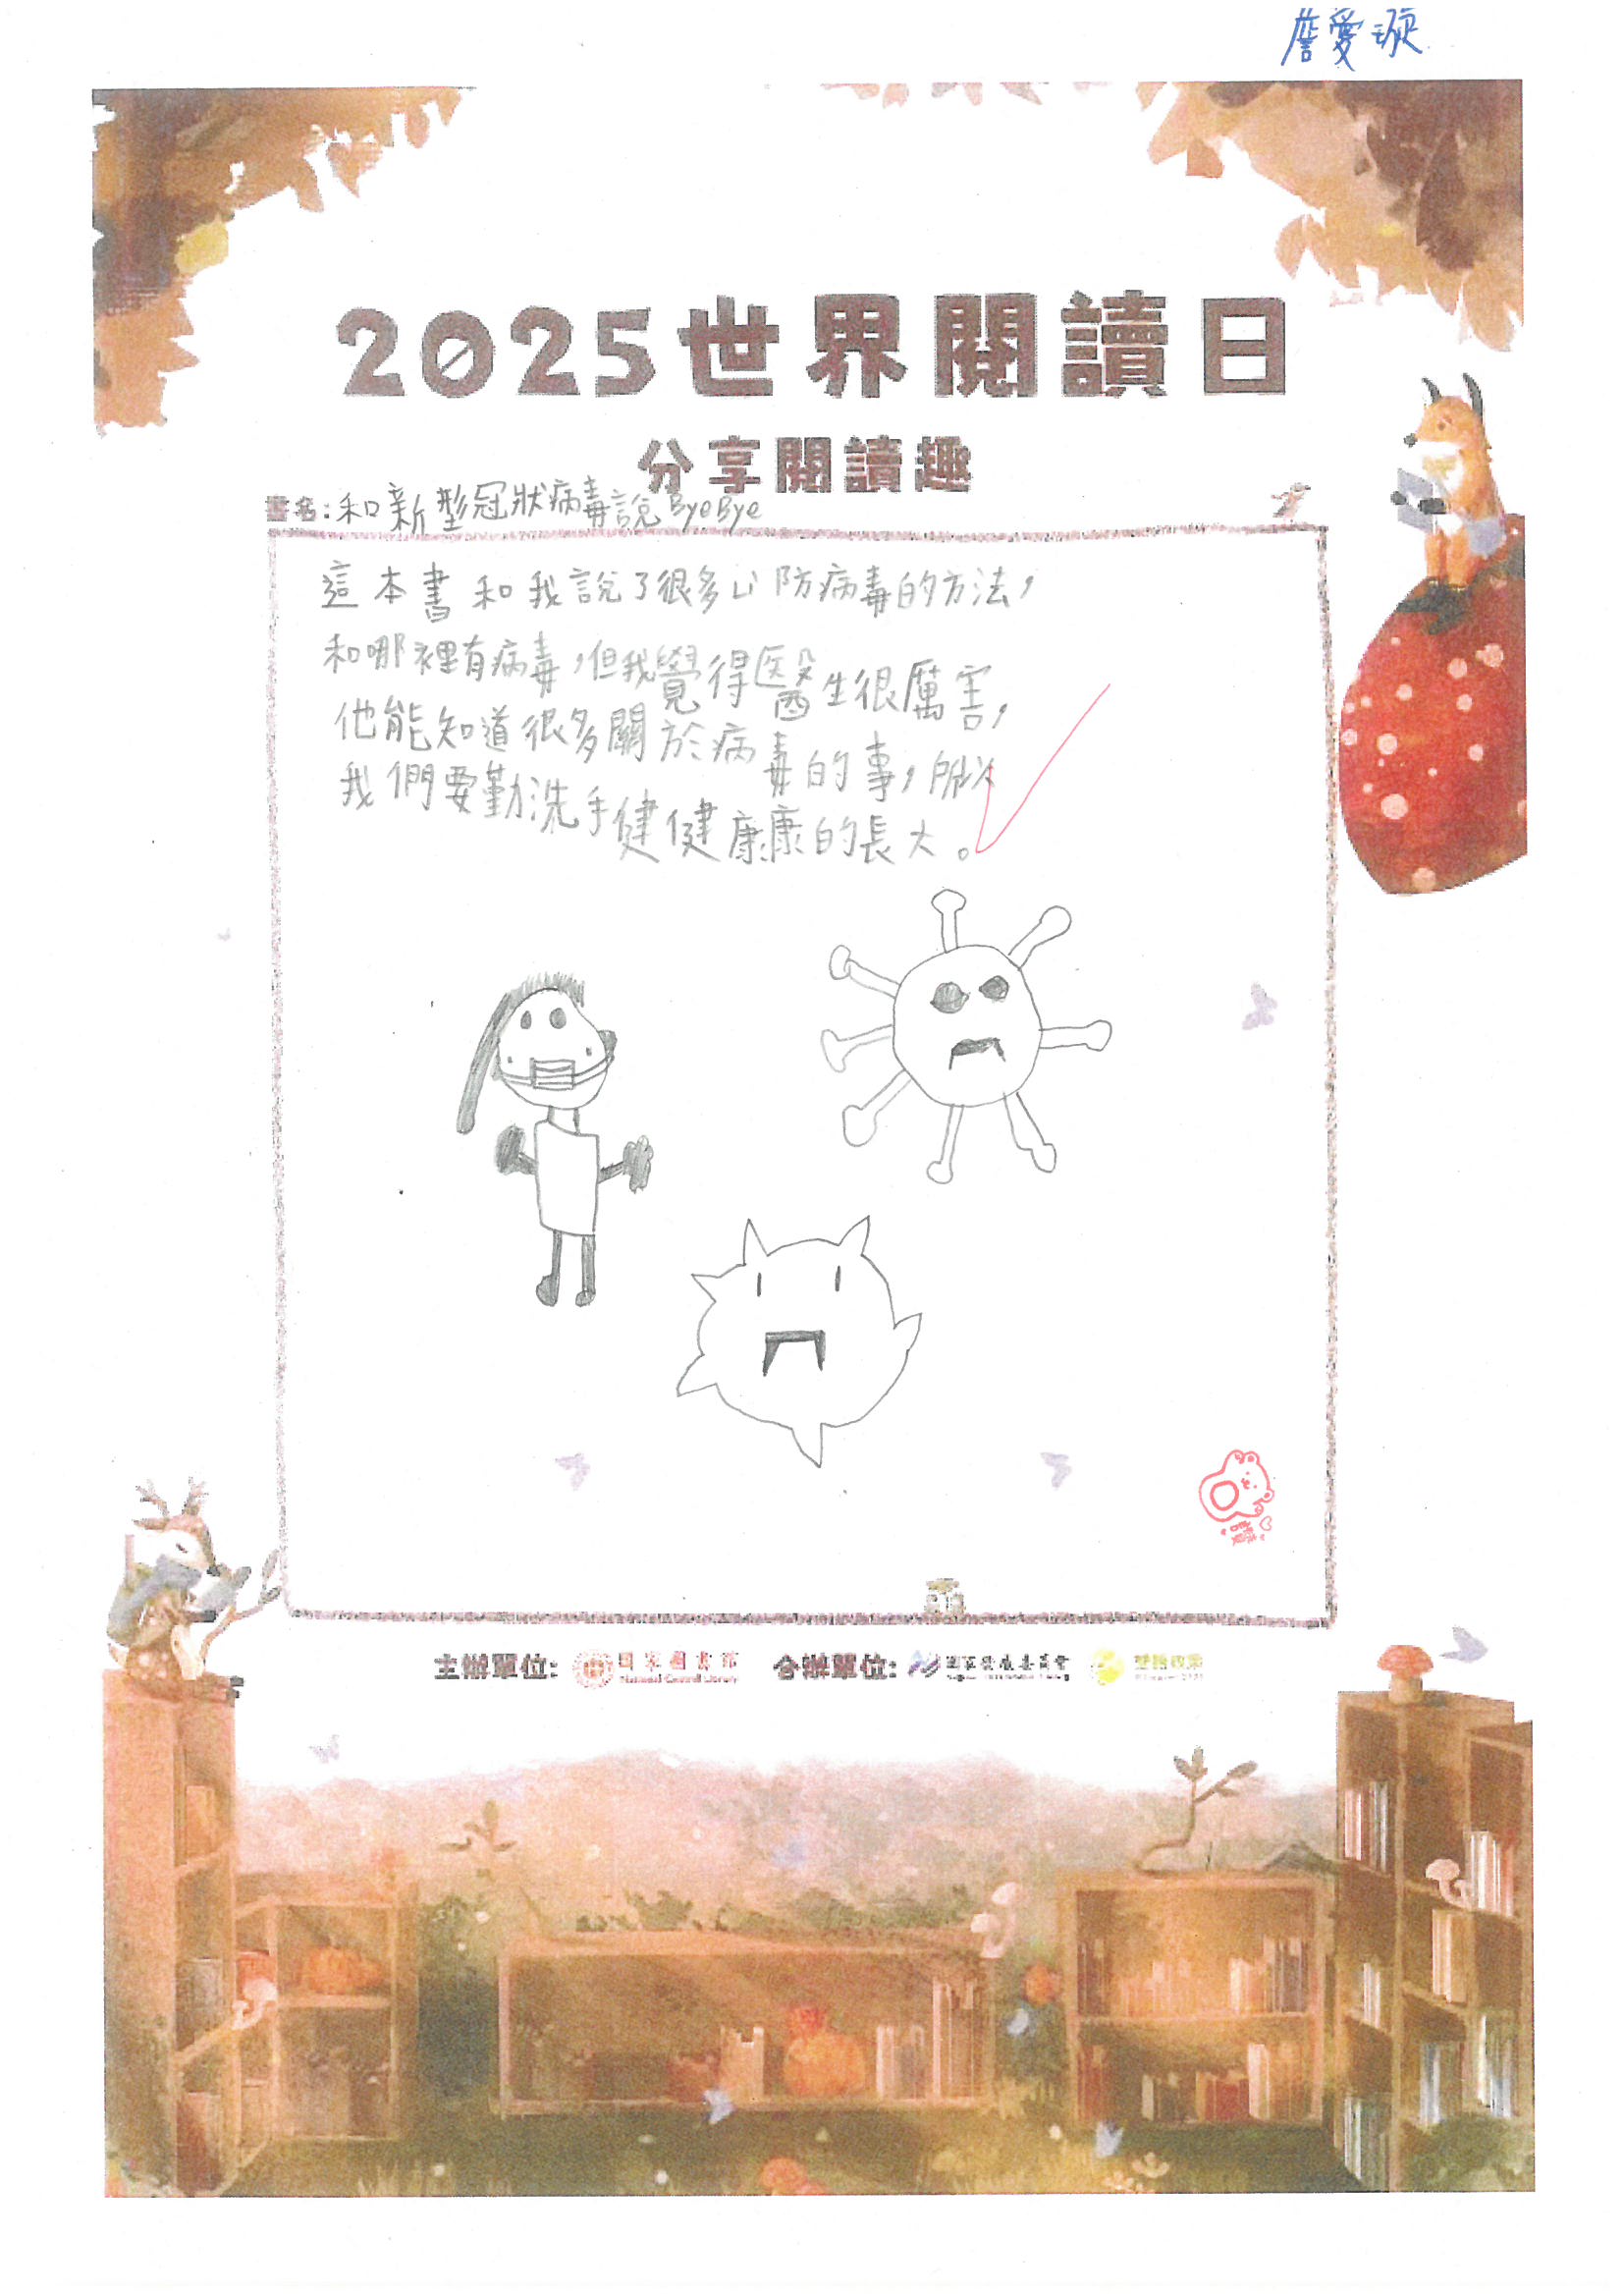 詹愛璇
2025世界閱讀日
分享閱讀趣
書名:和新型冠狀病毒說ByeBye
這本書和我說了很多ㄩˋ防病毒的方法，
和哪裡有病毒，但我覺得醫生很厲害，
他能知道很多關於病毒的事，所以
我們要勤洗手健健康康的長大。
主辦單位: 國家圖書館 National Central Library 合辦單位: 國家發展委員會